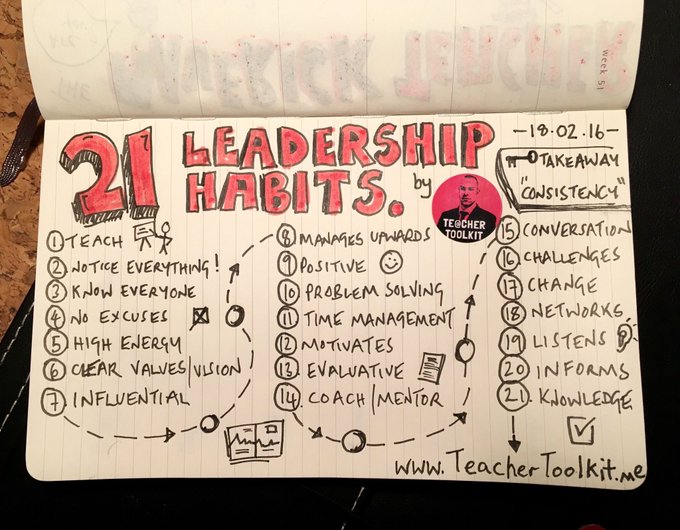 week 51
21 LEADERSHIP HABITS.
by
TE@CHER
TOOLKIT
-18.02.16-
TAKEAWAY
"CONSISTENCY"
1 TEACH
2 NOTICE EVERYTHING!
3 KNOW EVERYONE
4 NO EXCUSES
5 HIGH ENERGY
6 CLEAR VALUES/VISION
7. INFLUENTIAL
8 MANAGES UPWARDS
9 POSITIVE
10 PROBLEM SOLVING
11 TIME MANAGEMENT
12 MOTIVATES
13. EVALUATIVE
14. COACH/MENTOR
15 CONVERSATION
16 CHALLENGES
17 CHANGE
18 NETWORKS
19 LISTENS
20 INFORMS
21. KNOWLEDGE
www.TeacherToolkit.me